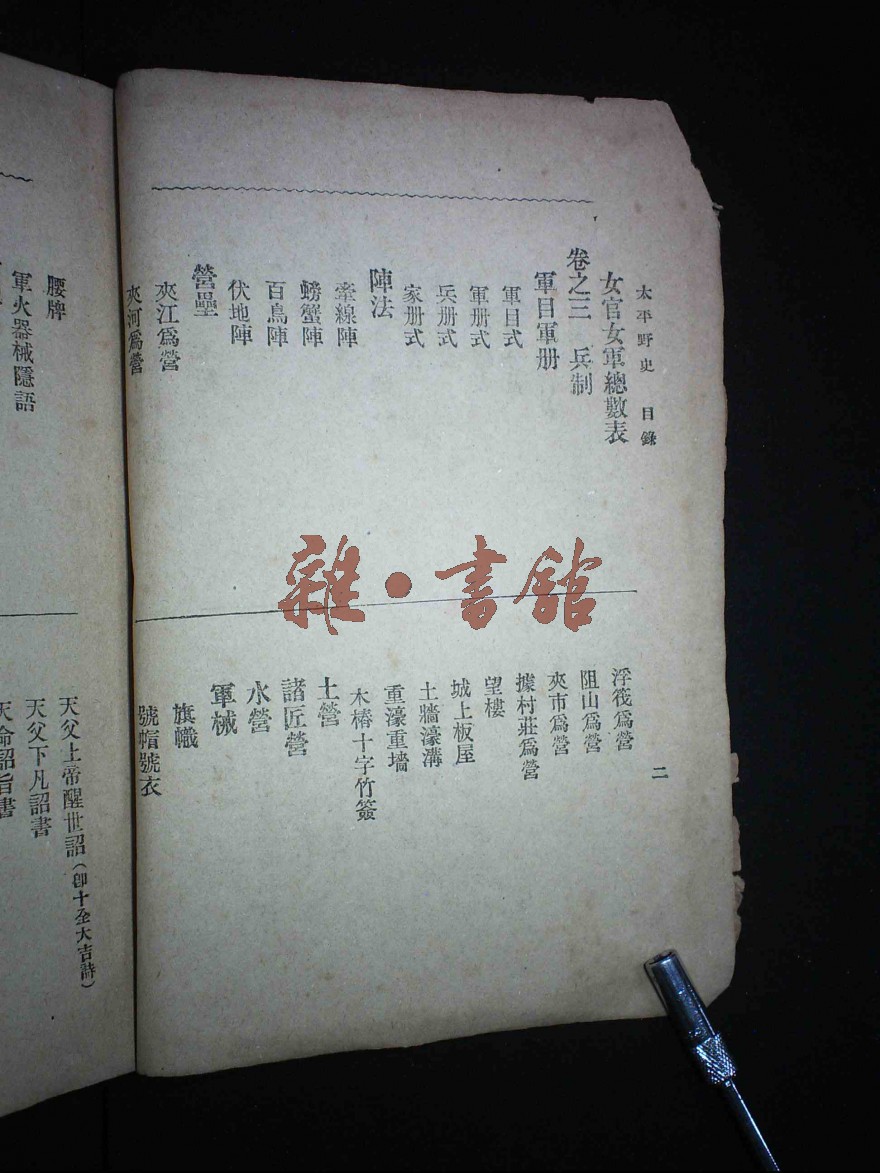 太平野史　目錄
二
女官女軍總數表
卷之三　兵制
軍目軍册
軍目式
軍册式
兵册式
家册式
陣法
牽線陣
螃蟹陣
百鳥陣
伏地陣
營壘
夾江爲營
夾河爲營
浮筏爲營
阻山爲營
夾市爲營
據村莊爲營
望樓
城上板屋
土牆濠溝
重濠重墻
木樁十字竹簽
土營
諸匠營
水營
軍械
旗幟
號帽號衣
腰牌
軍火器械隱語
天父上帝醒世詔（卽十全大吉詩）
天父下凡詔書
天命詔旨書
雜·書館